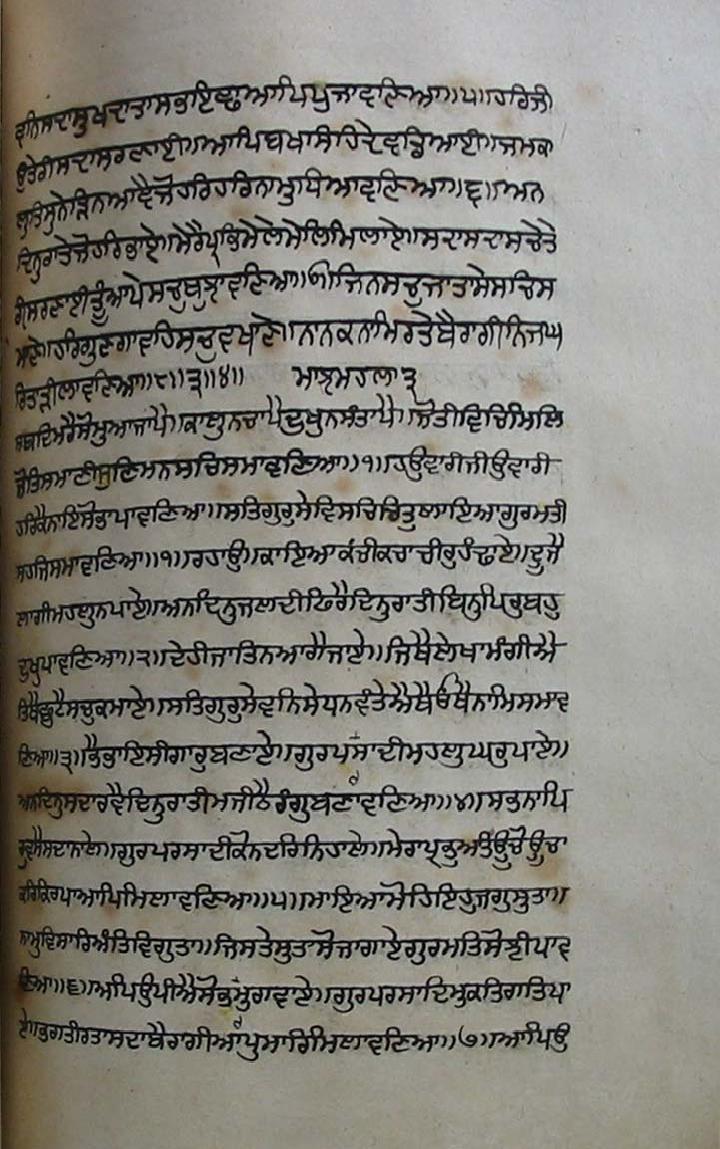 ਵਨਿਸਦਾਸੁਖਦਾਤਾਸਭਾਇਛੁਆਪਿਪੁਜਾਵਣਿਆ॥੫॥ਹਰਿਜੀ
ਉਤੇਰੀਸਦਾਸਰਣਾਈ॥ਆਪਿਬਖਾਸਿਹਿਦੇਵਡਿਆਈ॥ਜਮਕਾ
ਲੁਤਿਸੁਨੇੜਿਨਆਵੈਜੋਹਰਿਹਰਿਨਾਮੁਧਿਆਵਣਿਆ॥੬॥ਅਨ
ਦਿਨੁਰਾਤੇਜੋਹਰਿਭਾਏ॥ਮੇਰੈਪ੍ਰਭਿਮੇਲੇਮੇਲਿਮਿਲਾਏ॥ਸਦਾਸਦਾਸਚੇਤੇ
ਰੀਸਰਣਾਈਤੂੰਆਪੇਸਚੁਬੁਝਾਵਣਿਆ॥੭॥ਜਿਨਸਚੁਜਾਤਾਸੇਸਚਿਸ
ਮਾਣੇ॥ਹਰਿਗੁਣਗਾਵਹਿਸਚੁਵਖਾਣੇ॥ਨਾਨਕਨਾਮਿਰਤੇਬੈਰਾਗੀਨਿਜਘ
ਰਿਤਾੜੀਲਾਵਣਿਆ॥੮॥੩॥੪॥ ਮਾਝਮਹਲਾ੩
ਸਬਦਿਮਰੈਸੋਮੁਆਜਾਪੈ॥ਕਾਲੁਨਚਾਪੈਦੁਖੁਨਸੰਤਾਪੈ॥ਜੋਤੀਵਿਚਿਮਿਲਿ
ਜੋਤਿਸਮਾਣੀਸੁਣਿਮਨਸਚਿਸਮਾਵਣਿਆ॥੧॥ਹਉਵਾਰੀਜੀਉਵਾਰੀ
ਹਰਿਕੈਨਾਇਸੋਭਾਪਾਵਣਿਆ॥ਸਤਿਗੁਰੁਸੇਵਿਸਚਿਚਿਤੁਲਾਇਆਗੁਰਮਤੀ
ਸਹਜਿਸਮਾਵਣਿਆ॥੧॥ਰਹਾਉ॥ਕਾਇਆਕੰਚੀਕਚਾਚੀਰੁਹੰਢਾਏ॥ਦੂਜੈ
ਲਾਗੀਮਹਲੁਨਪਾਏ॥ਅਨਦਿਨੁਜਲਦੀਫਿਰੈਦਿਨੁਰਾਤੀਬਿਨੁਪਿਰਬਹੁ
ਦੁਖੁਪਾਵਣਿਆ॥੨॥ਦੇਹੀਜਾਤਿਨਆਗੈਜਾਏ॥ਜਿਥੈਲੇਖਾਮੰਗੀਐ
ਤਿਥੈਛੁਟੈਸਚੁਕਮਾਏ॥ਸਤਿਗੁਰੁਸੇਵਨਿਸੇਧਨਵੰਤੇਐਥੈਓਥੈਨਾਮਿਸਮਾਵ
ਣਿਆ॥੩॥ਭੈਭਾਇਸੀਗਾਰੁਬਣਾਏ॥ਗੁਰਪਰਸਾਦੀਮਹਲੁਘਰੁਪਾਏ॥
ਅਨਦਿਨੁਸਦਾਰਵੈਦਿਨੁਰਾਤੀਮਜੀਠੈਰੰਗੁਬਣਾਵਣਿਆ॥੪॥ਸਭਨਾਪਿ
ਰੁਵਸੈਸਦਾਨਾਲੇ॥ਗੁਰਪਰਸਾਦੀਕੋਨਦਰਿਨਿਹਾਲੇ॥ਮੇਰਾਪ੍ਰਭੁਅਤਿਊਚੋਊਚਾ
ਕਰਿਕਿਰਪਾਆਪਿਮਿਲਾਵਣਿਆ॥੫॥ਮਾਇਆਮੋਹਿਇਹੁਜਗੁਸੁਤਾ॥
ਨਾਮੁਵਿਸਾਰਿਅੰਤਿਵਿਗੁਤਾ॥ਜਿਸਤੇਸੁਤਾਸੋਜਾਗਾਏਗੁਰਮਤਿਸੋਝੀਪਾਵ
ਣਿਆ॥੬॥ਅਪਿਉਪੀਐਸੋਭਰਮੁਗਵਾਏ॥ਗੁਰਪਰਸਾਦਿਮੁਕਤਿਗਤਿਪਾ
ਏ॥ਭਗਤੀਰਤਾਸਦਾਬੈਰਾਗੀਆਪੁਮਾਰਿਮਿਲਾਵਣਿਆ॥੭॥ਆਪਿਉ